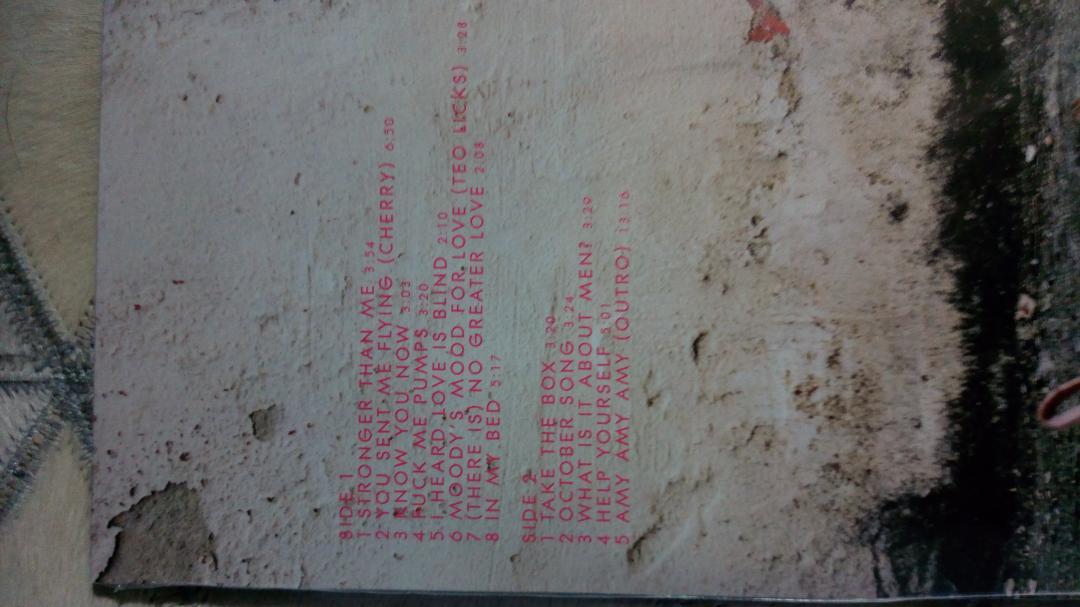 SIDE 1
1 STRONGER THAN ME 3:54
2 YOU SENT ME FLYING (CHERRY) 6:50
3 KNOW YOU NOW 3:03
4 FUCK ME PUMPS 3:20
5 I HEARD LOVE IS BLIND 2:10
6 MOODY'S MOOD FOR LOVE (TEO LICKS) 3:28
7 (THERE IS) NO GREATER LOVE 2:08
8 IN MY BED 5:17
SIDE 2
1 TAKE THE BOX 3:20
2 OCTOBER SONG 3:24
3 WHAT IS IT ABOUT MEN? 3:29
4 HELP YOURSELF 5:01
5 AMY AMY AMY (OUTRO) 13:16